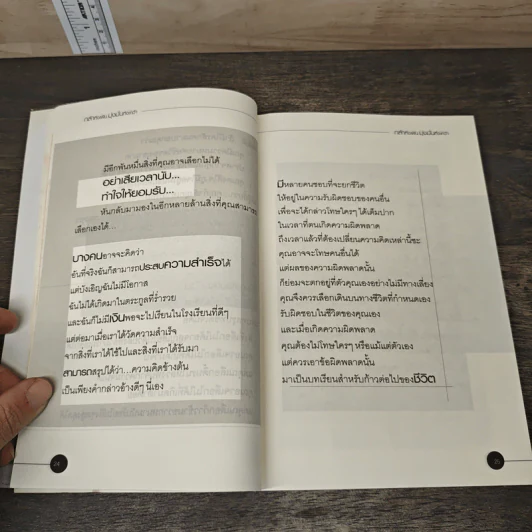 มีอีกพันหมื่นสิ่งที่คุณอาจเลือกไม่ได้
อย่าเสียเวลานับ...
ทำใจให้ยอมรับ...
หันกลับมามองในอีกหลายล้านสิ่งที่คุณสามารถ
เลือกเองได้...
บางคนอาจจะคิดว่า
อันที่จริงฉันก็สามารถประสบความสำเร็จได้
แต่บังเอิญฉันไม่มีโอกาส
ฉันไม่ได้เกิดมาในตระกูลที่ร่ำรวย
และฉันก็ไม่มีเงินพอจะไปเรียนในโรงเรียนที่ดีๆ
แต่ต่อมาเมื่อเราได้วัดความสำเร็จ
จากสิ่งที่เราได้ใช้ไปและสิ่งที่เราได้รับมา
สามารถสรุปได้ว่า...ความคิดข้างต้น
เป็นเพียงคำกล่าวอ้างดีๆ นี่เอง
มีหลายคนชอบที่จะยกชีวิต
ให้อยู่ในความรับผิดชอบของคนอื่น
เพื่อจะได้กล่าวโทษใครๆ ได้เต็มปาก
ในเวลาที่ตนเกิดความผิดพลาด
ถึงเวลาแล้วที่ต้องเปลี่ยนความคิดเหล่านี้ซะ
คุณอาจจะโทษคนอื่นได้
แต่ผลของความผิดพลาดนั้น
ก็ย่อมจะตกอยู่ที่ตัวคุณเองอย่างไม่มีทางเลี่ยง
คุณจึงควรเลือกเดินบนทางชีวิตที่กำหนดเอง
รับผิดชอบในชีวิตของคุณเอง
และเมื่อเกิดความผิดพลาด
คุณต้องไม่โทษใครๆ หรือแม้แต่ตัวเอง
แต่ควรเอาข้อผิดพลาดนั้น
มาเป็นบทเรียนสำหรับก้าวต่อไปของชีวิต